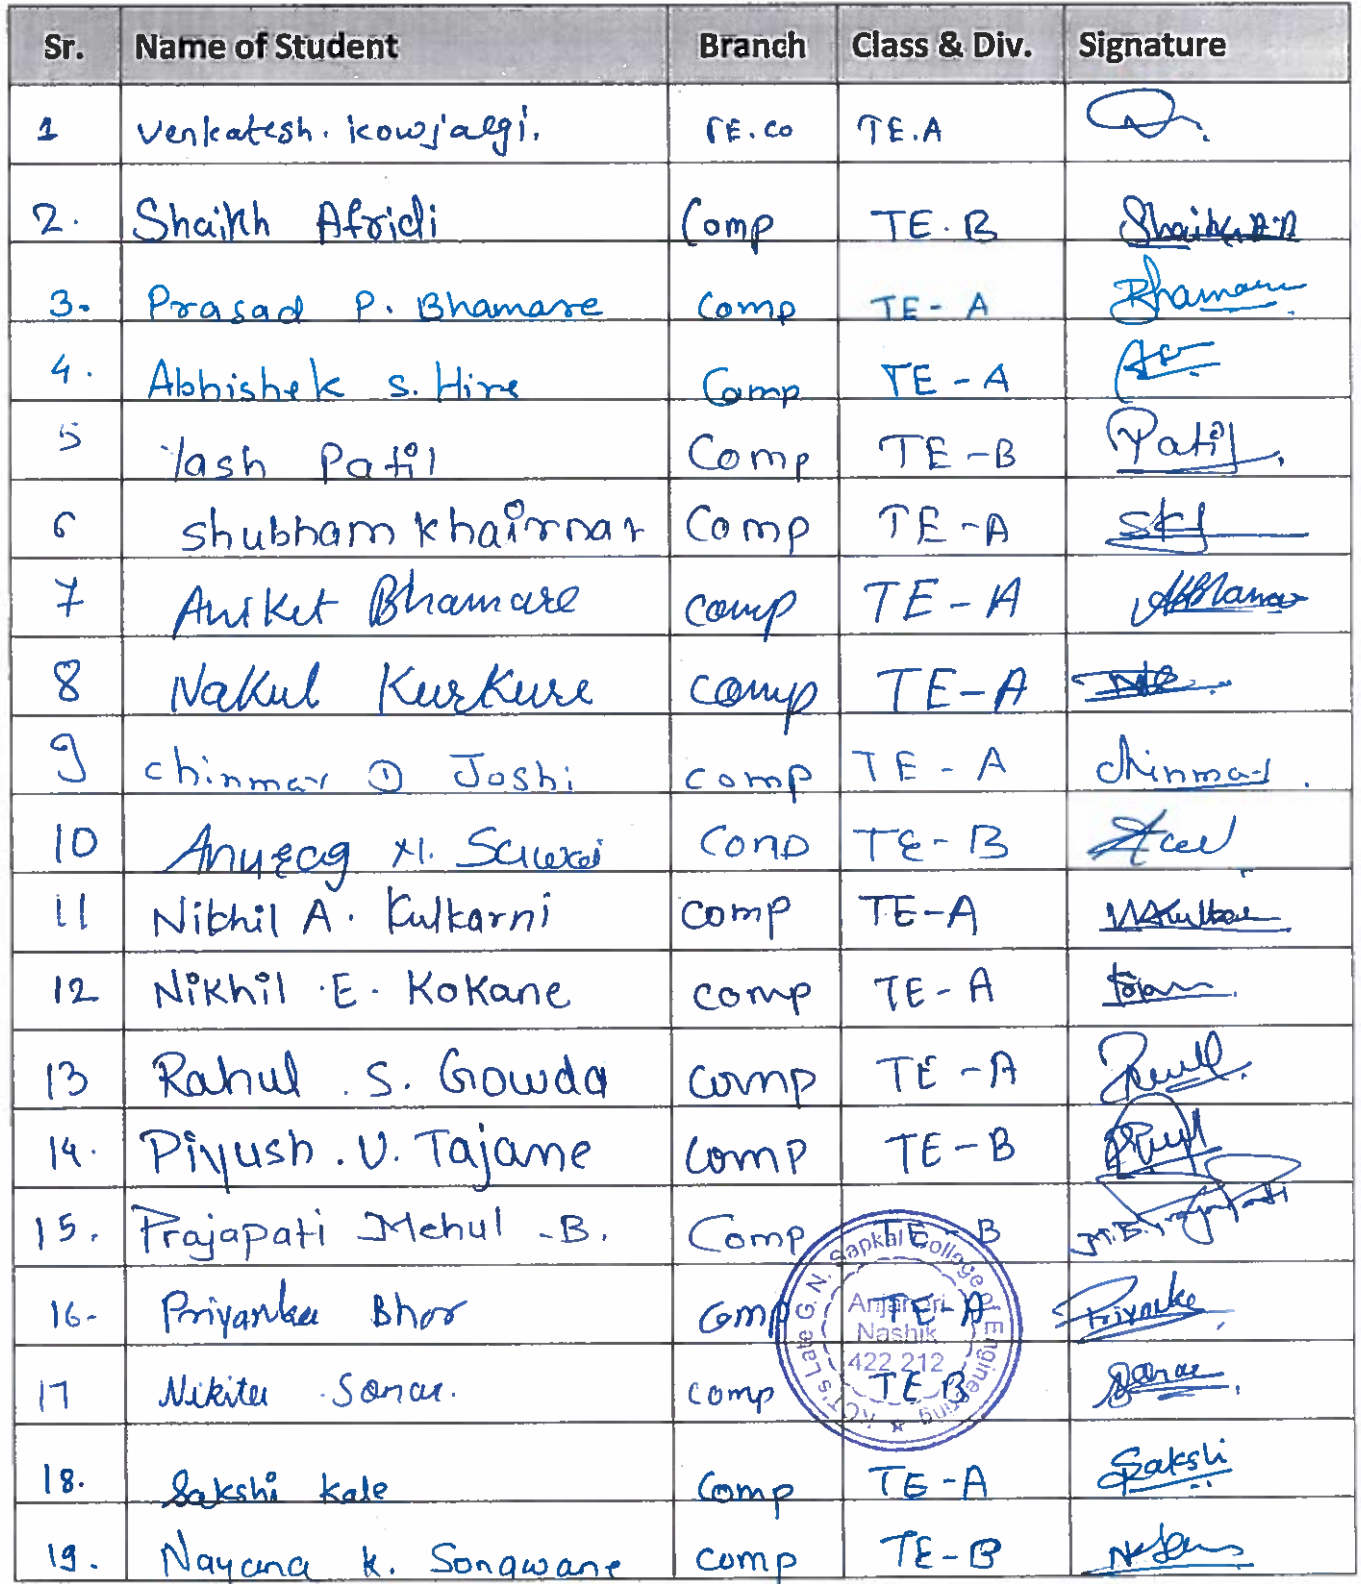 Sr. Name of Student Branch Class & Div. Signature
1 Venkatesh. kowjalgi. TE.CO TE.A
2. Shaikh Afridi Comp TE.B Shaikh
3. Prasad P. Bhamare Comp TE-A Bhamare
4. Abhishek S. Hire Comp TE-A
5 Yash Patil Comp TE-B Patil
6 Shubham Khairnar Comp TE-A
7 Aniket Bhamare comp TE-A
8 Nakul Kurkure comp TE-A
9 chinmay Joshi comp TE-A chinmay
10 Anurag Comp TE-B
11 Nikhil A. Kulkarni comp TE-A
12 Nikhil .E. Kokane comp TE-A
13 Rahul .S. Gowda comp TE-A
14. Piyush .V. Tajane comp TE-B
15. Prajapati Mehul -B. Comp TE-B M.B.Prajapati
16- Priyanka Bhor Comp TE-A Priyanka
17 Nikita Sonar. comp TE B Sonar
18. Sakshi Kale Comp TE-A Sakshi
19. Nayana K. Sonawane comp TE-B
KCT's Late G. N. Sapkal College of Engineering
Anjaneri
Nashik
422 212